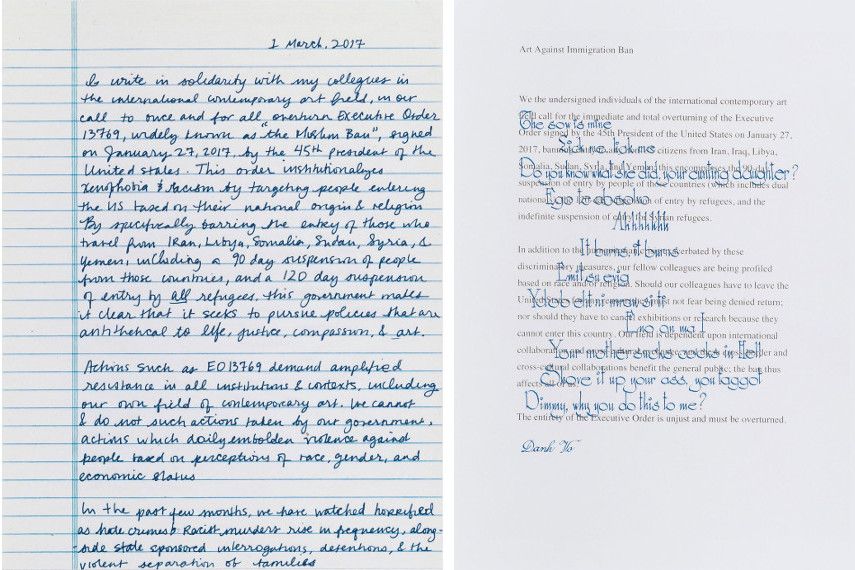 1 March, 2017
I write in solidarity with my collegues in
the international contemporary art field, in our
call to once and for all overturn Executive Order
13769, widely known as "the Muslim Ban", signed
on January 27, 2017, by the 45th president of the
United States. This order institutionalizes
xenophobia & racism by targeting people entering
the US based on their national origin & religion
By specifically barring the entry of those who
travel from Iran, Libya, Somalia, Sudan, Syria, &
Yemen, including a 90 day suspension of people
from those countries, and a 120 day suspension
of entry by all refugees, this government makes
it clear that it seeks to pursue policies that are
antithetical to life, justice, compassion, & art.
Actions such as EO13769 demand amplified
resistance in all institutions & contexts, including
our own field of contemporary art. We cannot
& do not such actions taken by our government,
actions which daily embolden violence against
people based on perceptions of race, gender, and
economic status
In the past few months, we have watched horrified
as hate crimes & Racist murders rise in frequency, along-
side state sponsored interrogations, detentions, & the
violent separation of families
Art Against Immigration Ban
We the undersigned individuals of the international contemporary art
field call for the immediate and total overturning of the Executive
The sow is mine
Order signed by the 45th President of the United States on January 27,
2017, citizens from Iran, Iraq, Libya,
lick me, lick me
Somalia, Sudan, Syria, and Yemen
Do you know what she did, your cunting daughter?
suspension of entry by people of these countries (which includes dual
of entry by refugees, and the
Ego te absolvo
indefinite suspension of entry by Syrian refugees.
Ahhhhhhh
In addition to the exacerbated by these
It burns, it burns
discriminatory measures, our fellow colleagues are being profiled
based on race and/or religion. Should our colleagues have to leave the
Emit su evig
United not fear being denied return;
Ydob eht ni mraw si ti
nor should they have to cancel exhibitions or research because they
cannot enter this country. Our field is dependent upon international
Eno on ma I
and
Your mother sucks cocks in Hell
cross-cultural collaborations benefit the general public; the ban thus
affects all of us.
Shove it up your ass, you faggot
Dimmy, why you do this to me?
The entirety of the Executive Order is unjust and must be overturned.
Danh Vo